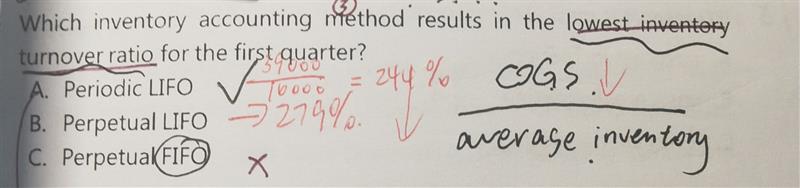 ③
Which inventory accounting method results in the lowest inventory
turnover ratio for the first quarter?
A. Periodic LIFO ✓ 39000 / 16000 = 244 % COGS. ↓
B. Perpetual LIFO → 279%. ↓ average inventory
C. Perpetual FIFO ×